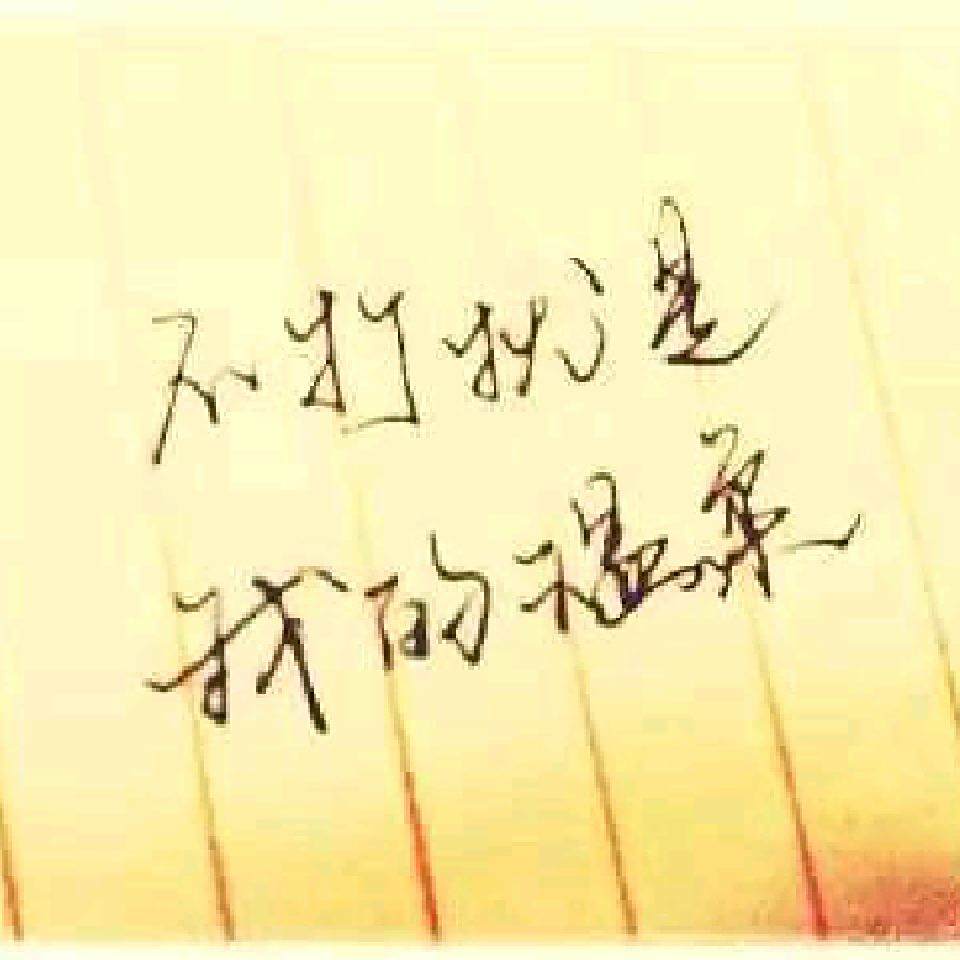 不打扰是
我的温柔